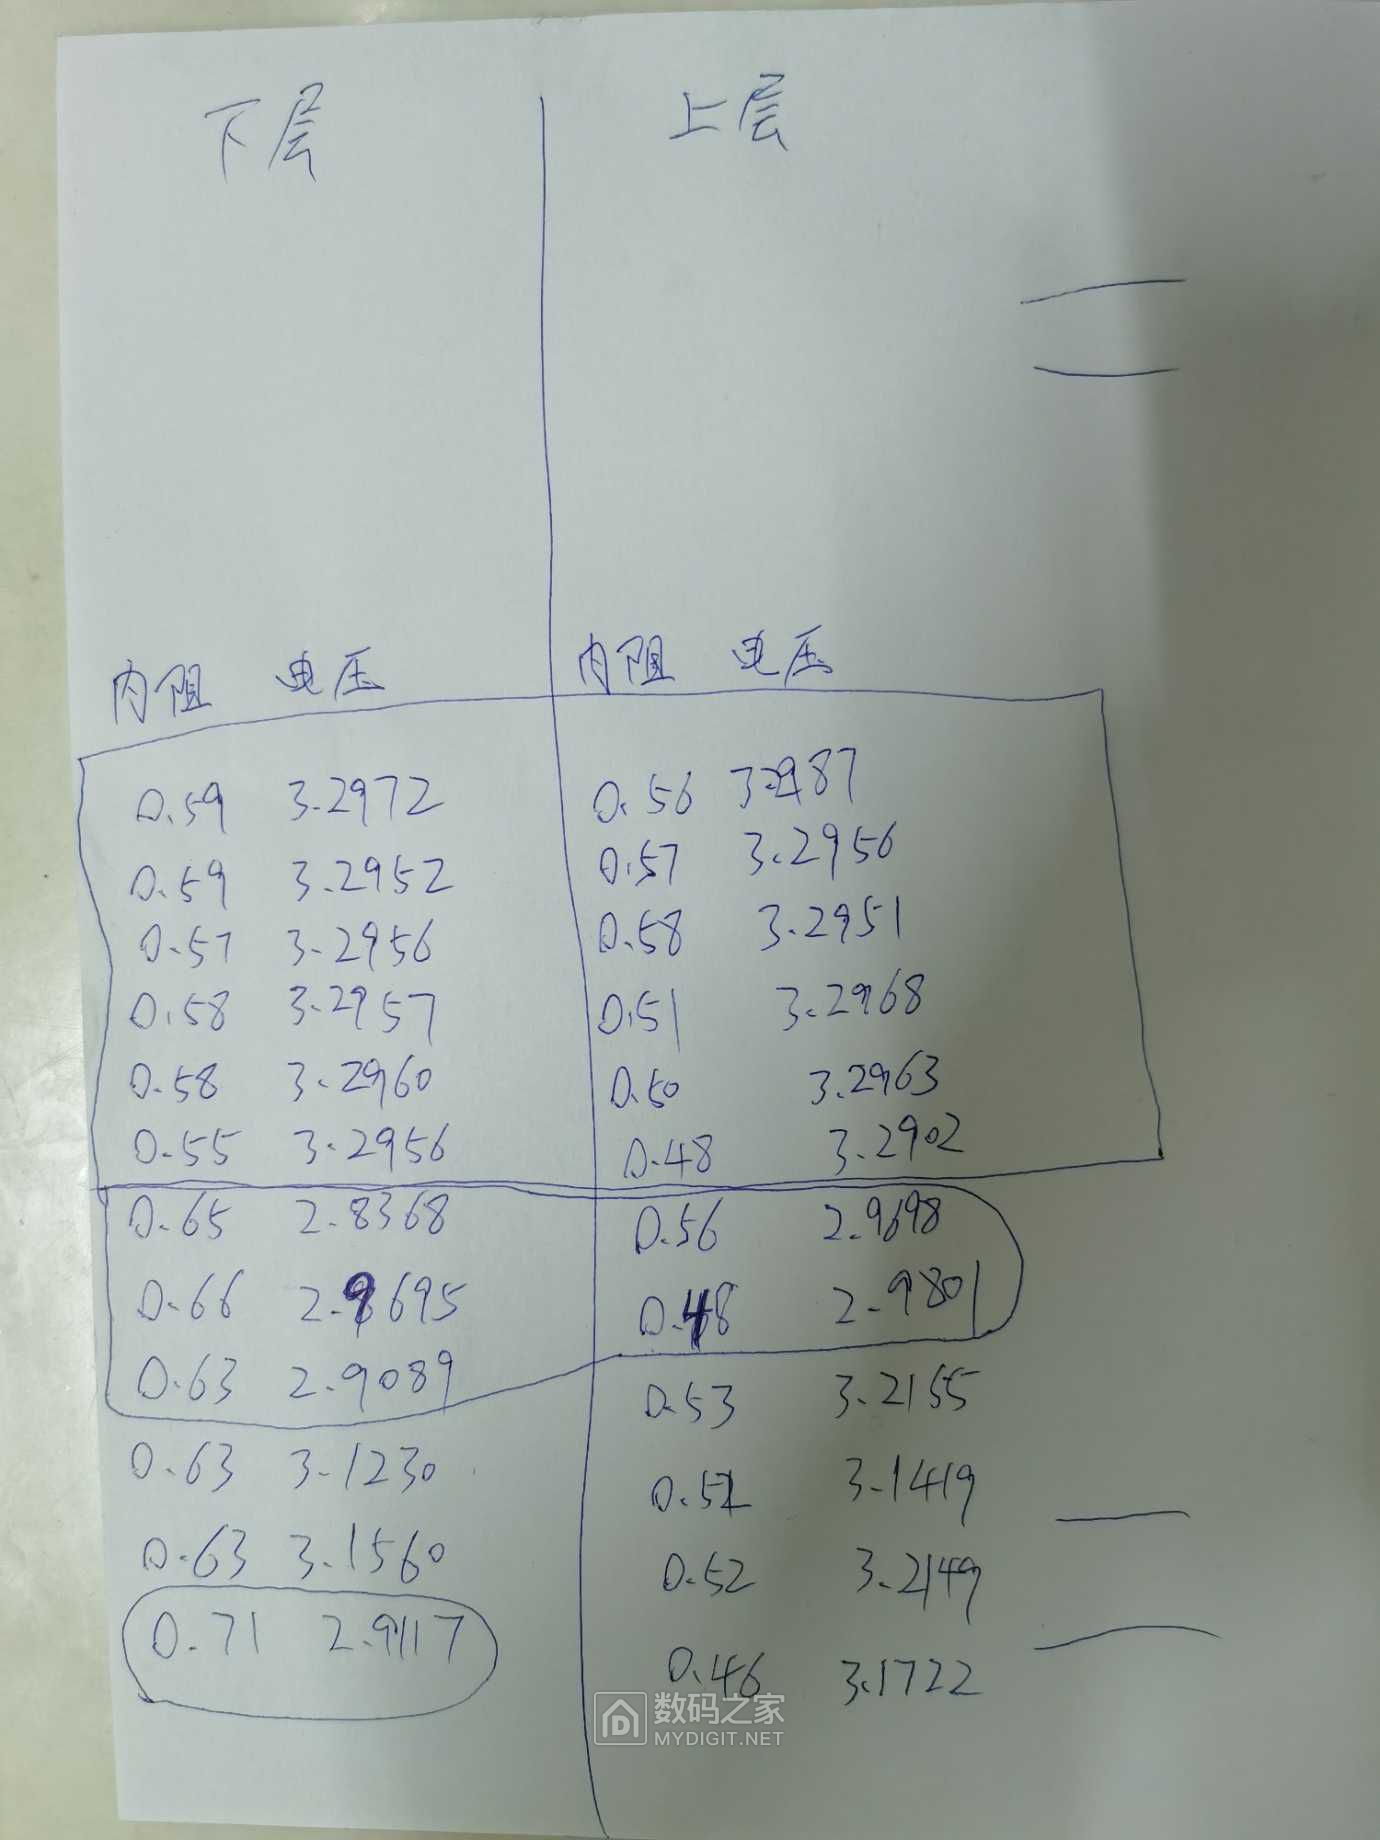 下层 上层
内阻 电压 内阻 电压
0.59 3.2972 0.56 3.2987
0.59 3.2952 0.57 3.2956
0.57 3.2956 0.58 3.2951
0.58 3.2957 0.51 3.2968
0.58 3.2960 0.50 3.2963
0.55 3.2956 0.48 3.2902
0.65 2.8368 0.56 2.9698
0.66 2.9695 0.48 2.9801
0.63 2.9089 0.53 3.2155
0.63 3.1230 3.1419
0.63 3.1560 0.52 3.2149
0.71 2.9117 0.46 3.1722
数码之家
MYDIGIT.NET